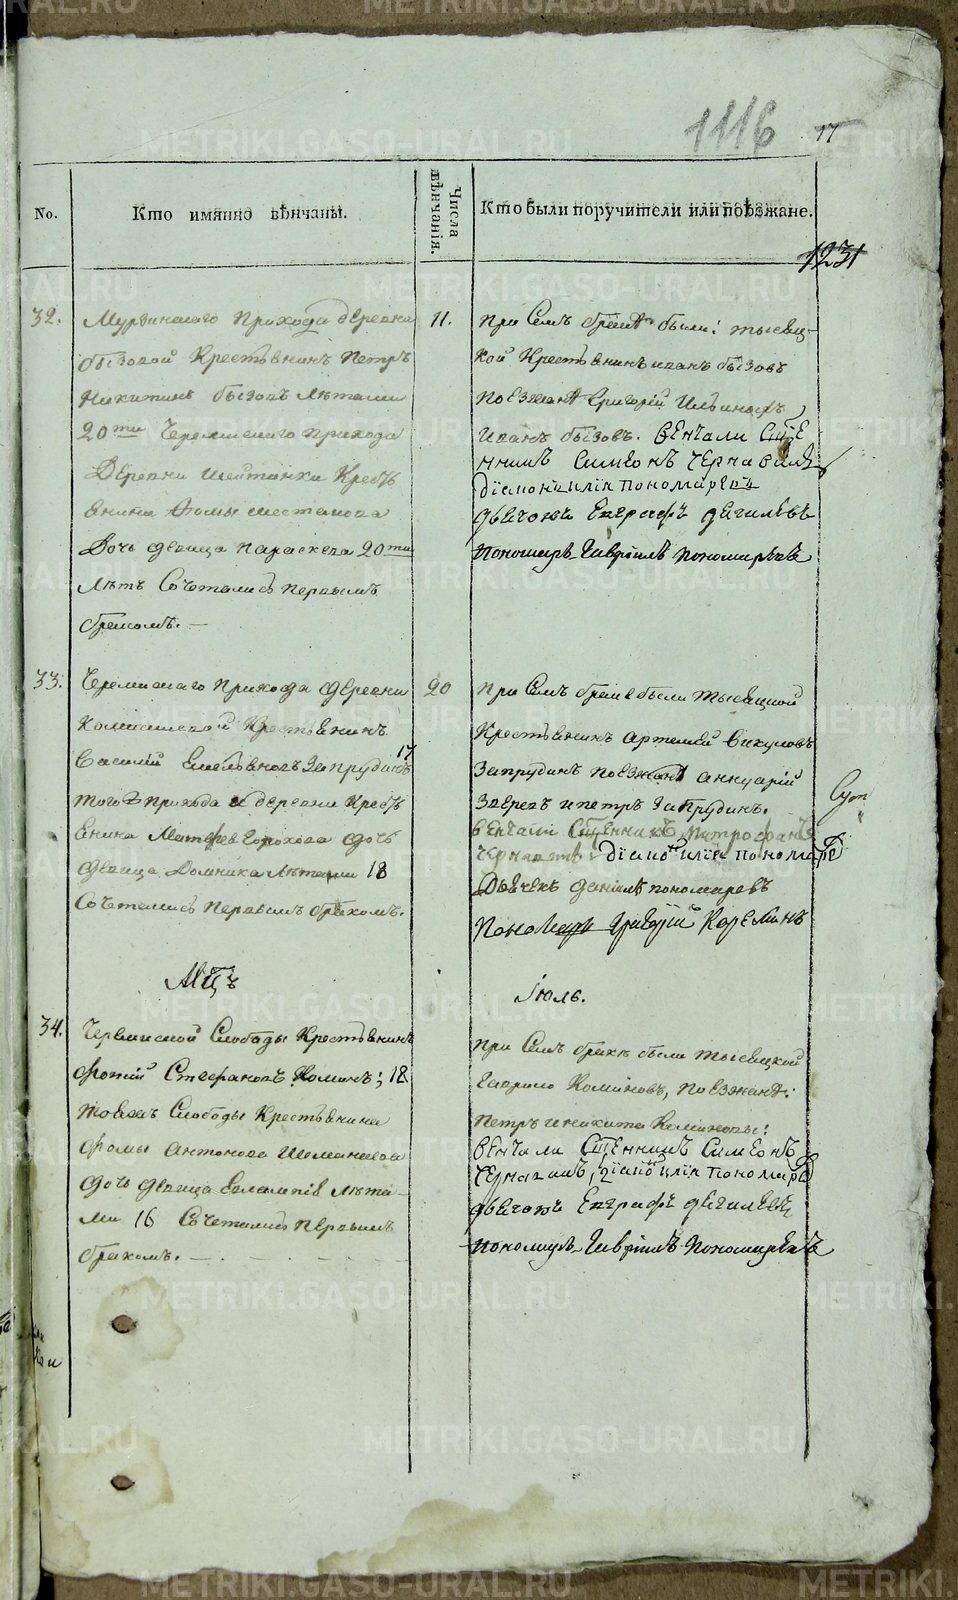 1116
17
No.
Кто имянно вѣнчаны.
Числа вѣнчанія.
Кто были поручители или поѣзжане.
1231
32.
Мурзинскаго прихода деревни
бызовой Крестьянинъ Петръ
Никитинъ бызовъ лѣтами
20ти Черемискаго прихода
Деревни Шайтанки Кресть
янина Фомы
Дочь девица Параскева 20ти
лѣтъ Сочетались первымъ
бракомъ. —
11.
при Семъ бракѣ были: тысяц-
кой Крестьянинъ иванъ бызовъ
поезжане Григорій
иванъ бызовъ. венчали Сще
нникъ Симеонъ Чернавинъ
діаконъ илія пономаревъ
дьячокъ Евграфъ дягилевъ
пономарь Гавріилъ пономаревъ
33.
Черемискаго прихода деревни
Крестьянинъ
Василій Емельяновъ Запрудинъ 17
того прихода и деревни Кресть
янина Матфея Горохова дочь
девица Домника лѣтами 18
Сочетались первымъ бракомъ.
20
при Семъ бракѣ были тысяцкой
Крестьянинъ артемей Викуловъ
Запрудинъ поезжане
Зверевъ и петръ Запрудинъ.
венчали Сщенникъ Митрофанъ
Чернавинъ діаконъ илія пономаре
Дьячекъ даніилъ пономаревъ
Пономарь Григорій Корелинъ
Мцъ
Іюль.
34.
Черемиской Слободы Крестьянинъ
фотій Стефановъ Коминъ; 18
тоежъ Слободы Крестьянина
фомы антонова
дочь девица Евлампія лѣта-
ми 16 Сочетались первымъ
бракомъ. —
при Семъ бракѣ были тысяцкой
Гаврило Коминовъ, поезжане:
петръ и никита Комин​овы:
венчали Сщенникъ Симеонъ
Чернавинъ, діаконъ илія пономаре
дьячокъ Евграфъ дягилевъ
пономарь Гавріилъ Пономаревъ
METRIKI.GASO-URAL.RU